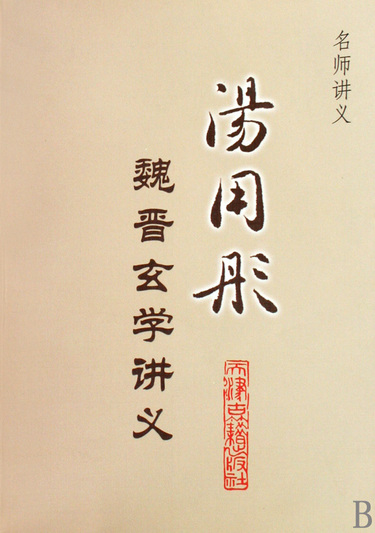 名师讲义
湯用彤
魏晋玄学讲义
天津古籍出版社
B